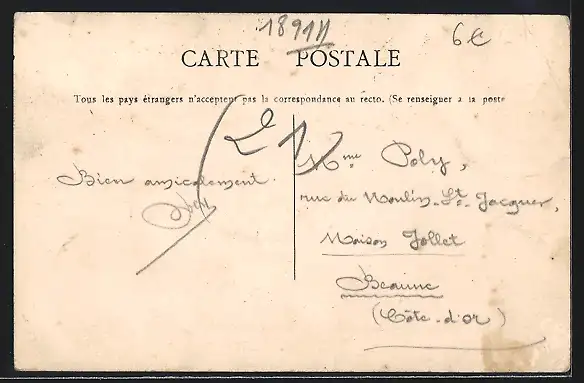 18911
6€
CARTE POSTALE
Tous les pays étrangers n'acceptent pas la correspondance au recto. (Se renseigner à la poste
(21)
Bien amicalement.
Mme Poly,
rue du Moulin-St-Jacques,
Maison Jollet
Beaune
(Côte-d'or)